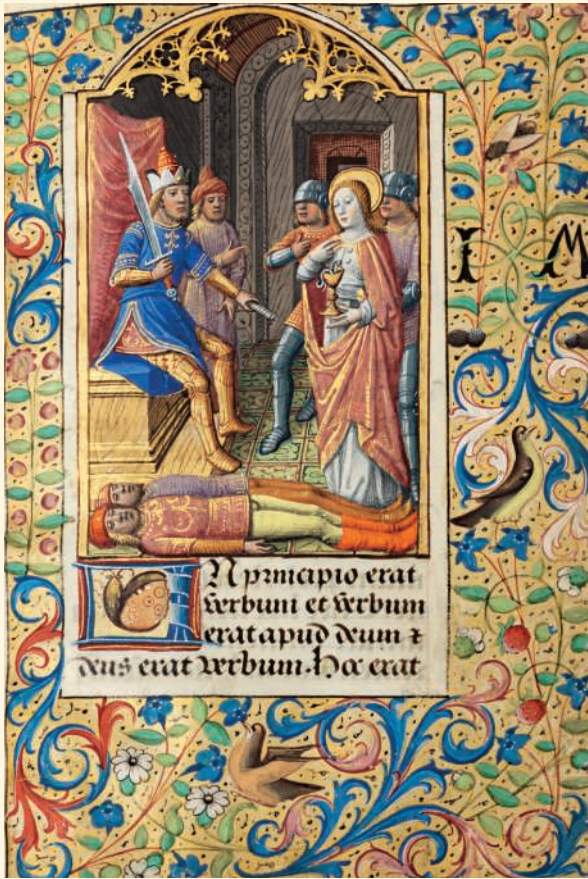 IN principio erat
verbum et verbum
erat apud deum ⁊
deus erat verbum. Hoc erat
I M